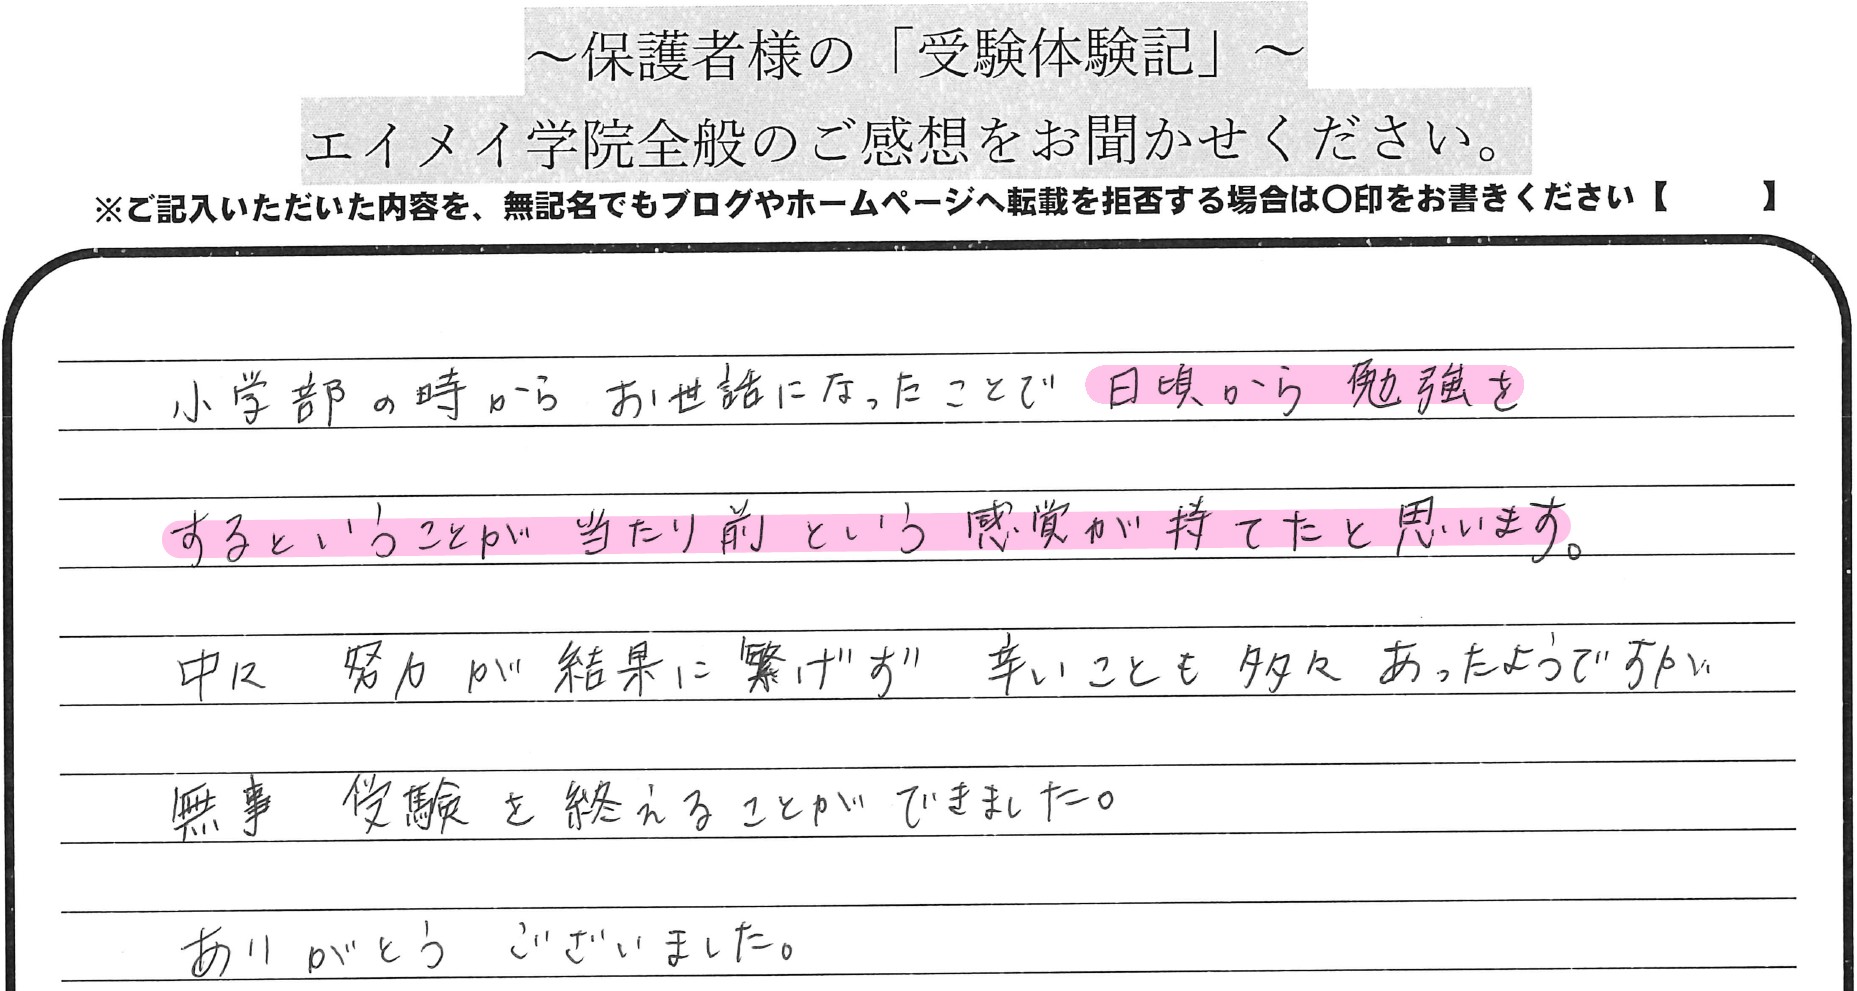 ～保護者様の「受験体験記」～
エイメイ学院全般のご感想をお聞かせください。
※ご記入いただいた内容を、無記名でもブログやホームページへ転載を拒否する場合は〇印をお書きください【　　　】
小学部の時から お世話になったことで 日頃から 勉強を
するということが 当たり前 という 感覚が 持てたと思います。
中に 努力が 結果に繋げず 辛いことも 多々 あったようですが
無事 受験を終えることができました。
ありがとう ございました。